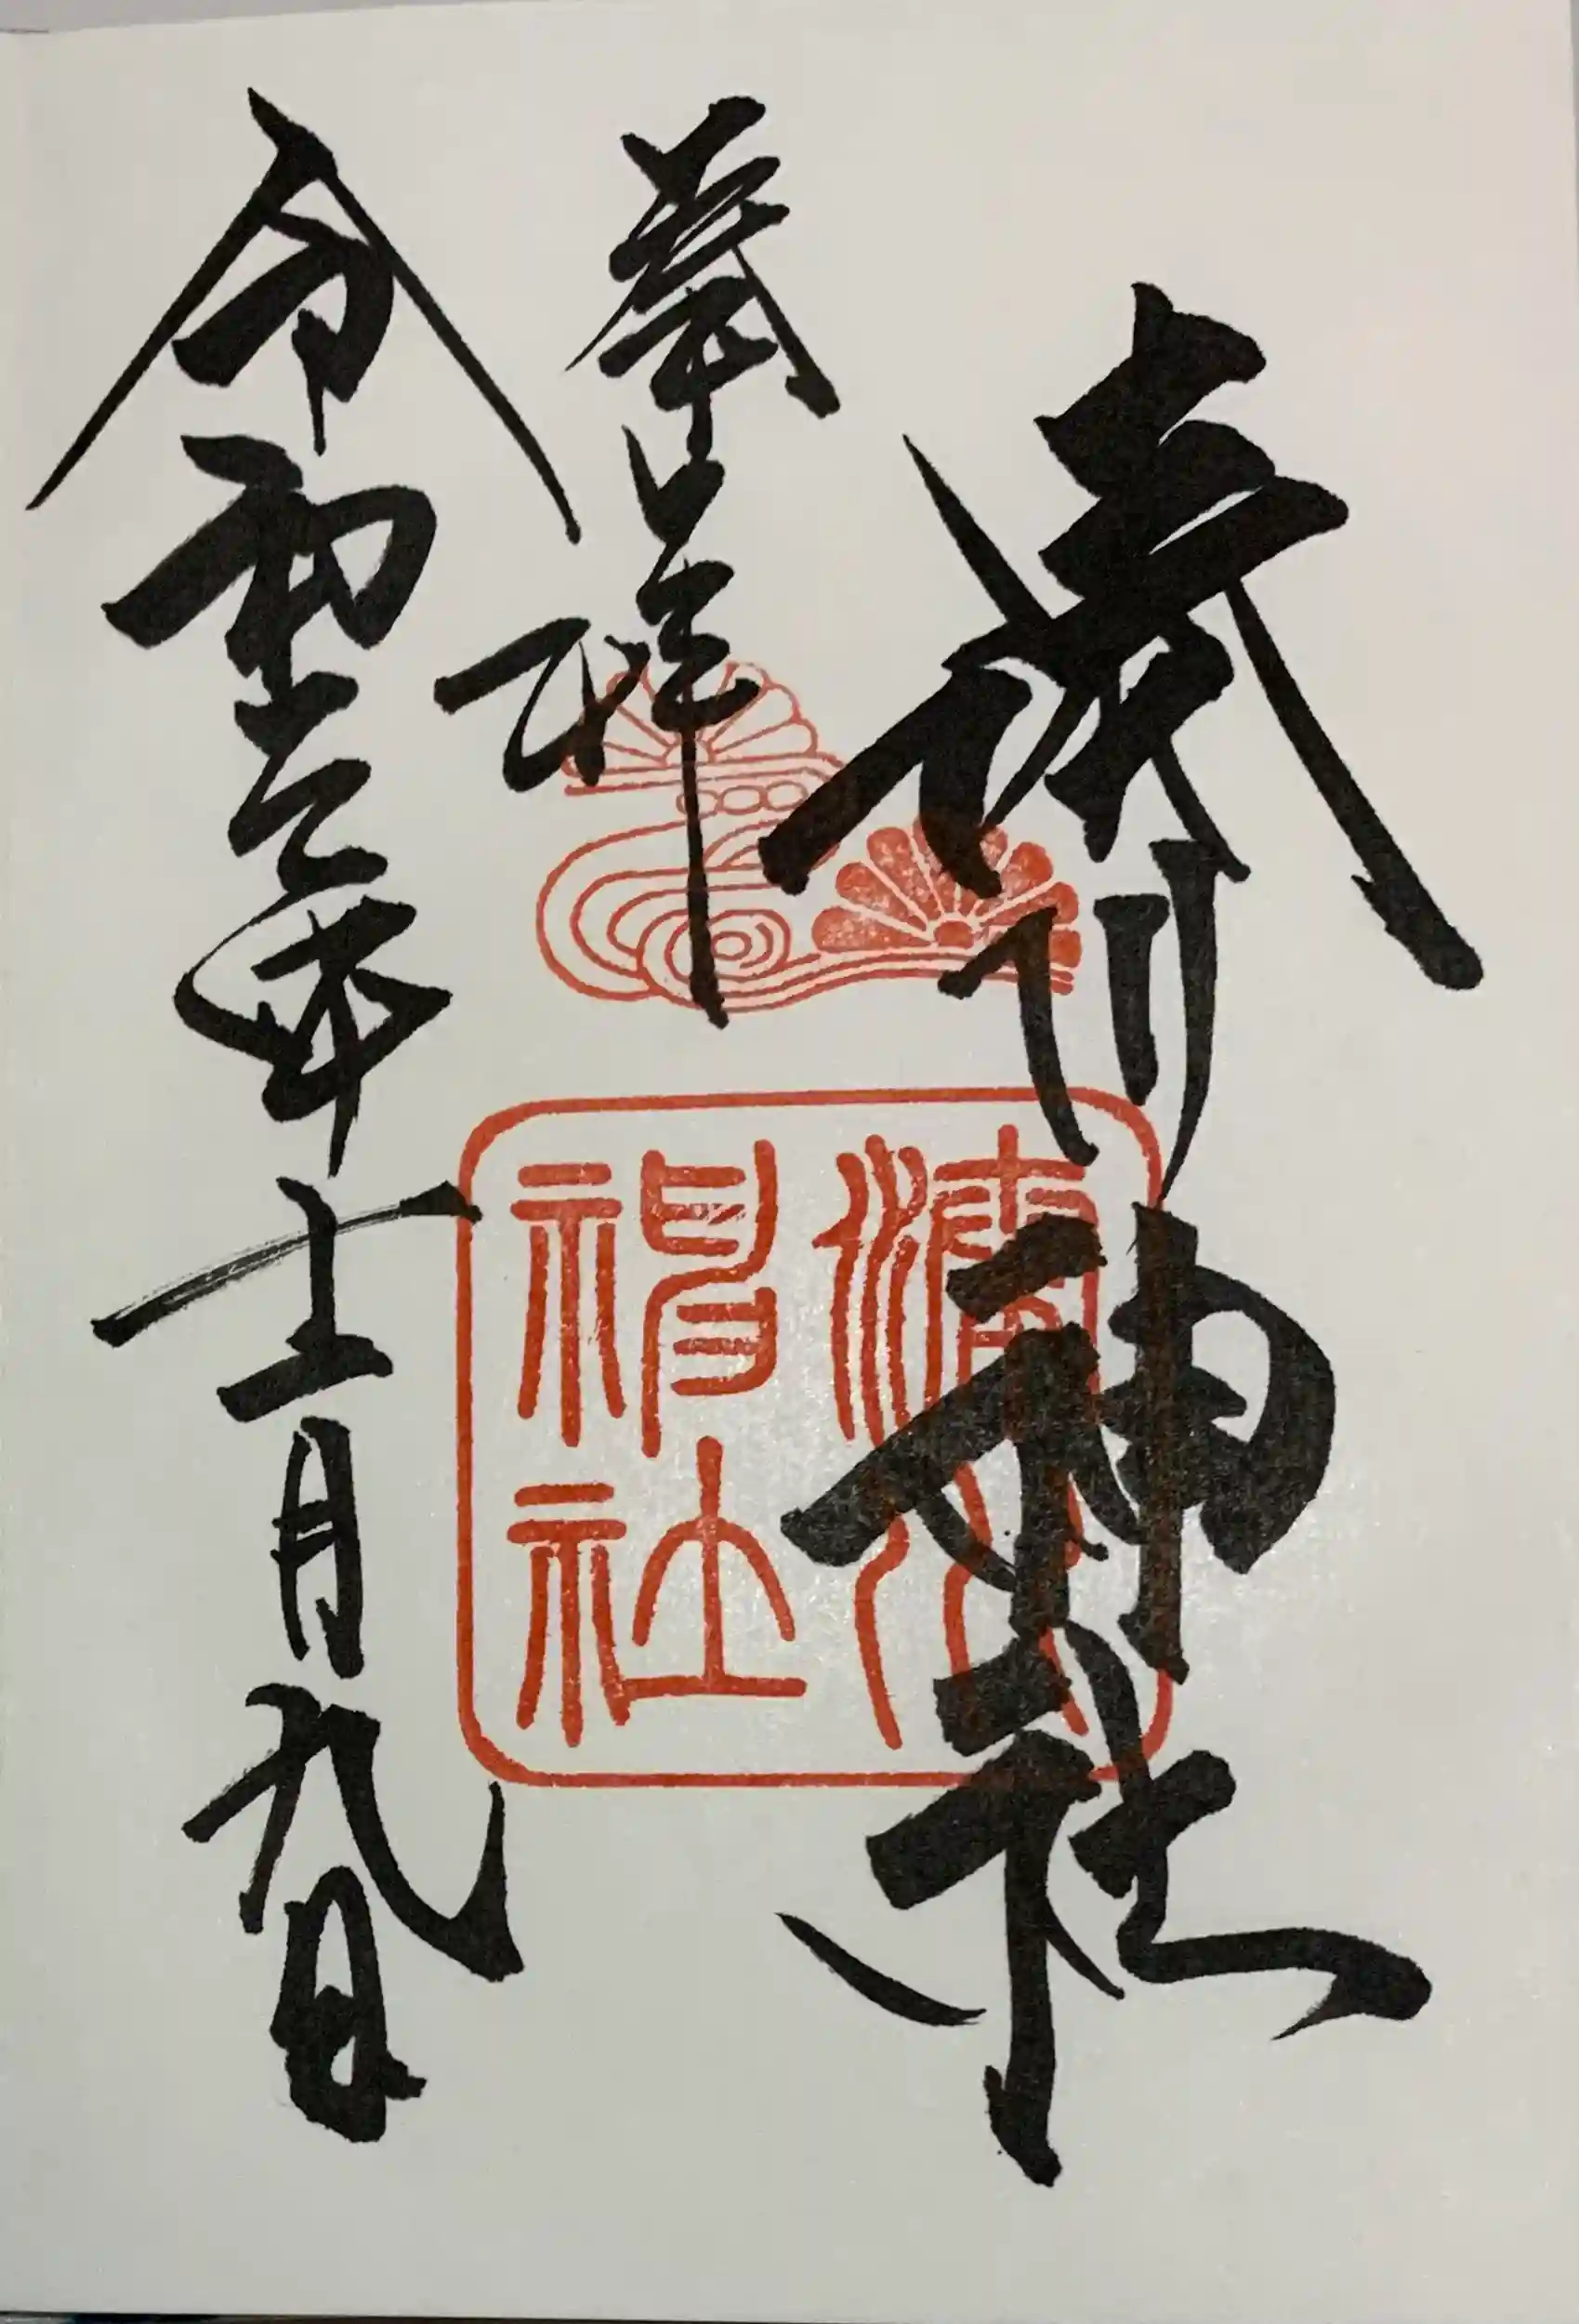 湊川神社
奉拝
令和 年十一月九日
湊川
神社